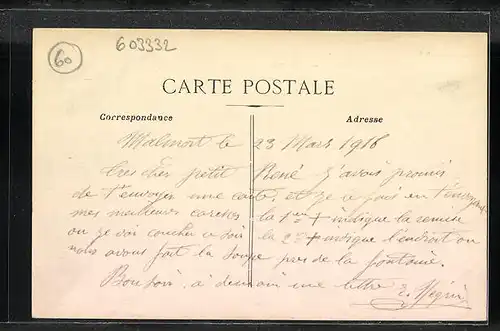 603332
60
CARTE POSTALE
Correspondance
Adresse
Malmort le 23 Mars 1916
Tres cher petit René J'avais promis
de t'envoyer une carte, et je le fais en t'envoyant
mes meilleures caresses la 1ere + indique la remise
ou je vai coucher ce soir la 2e + indique l'endroit ou
nous avons fait la soupe pres de la fontaine.
Bonsoir, à demain une lettre